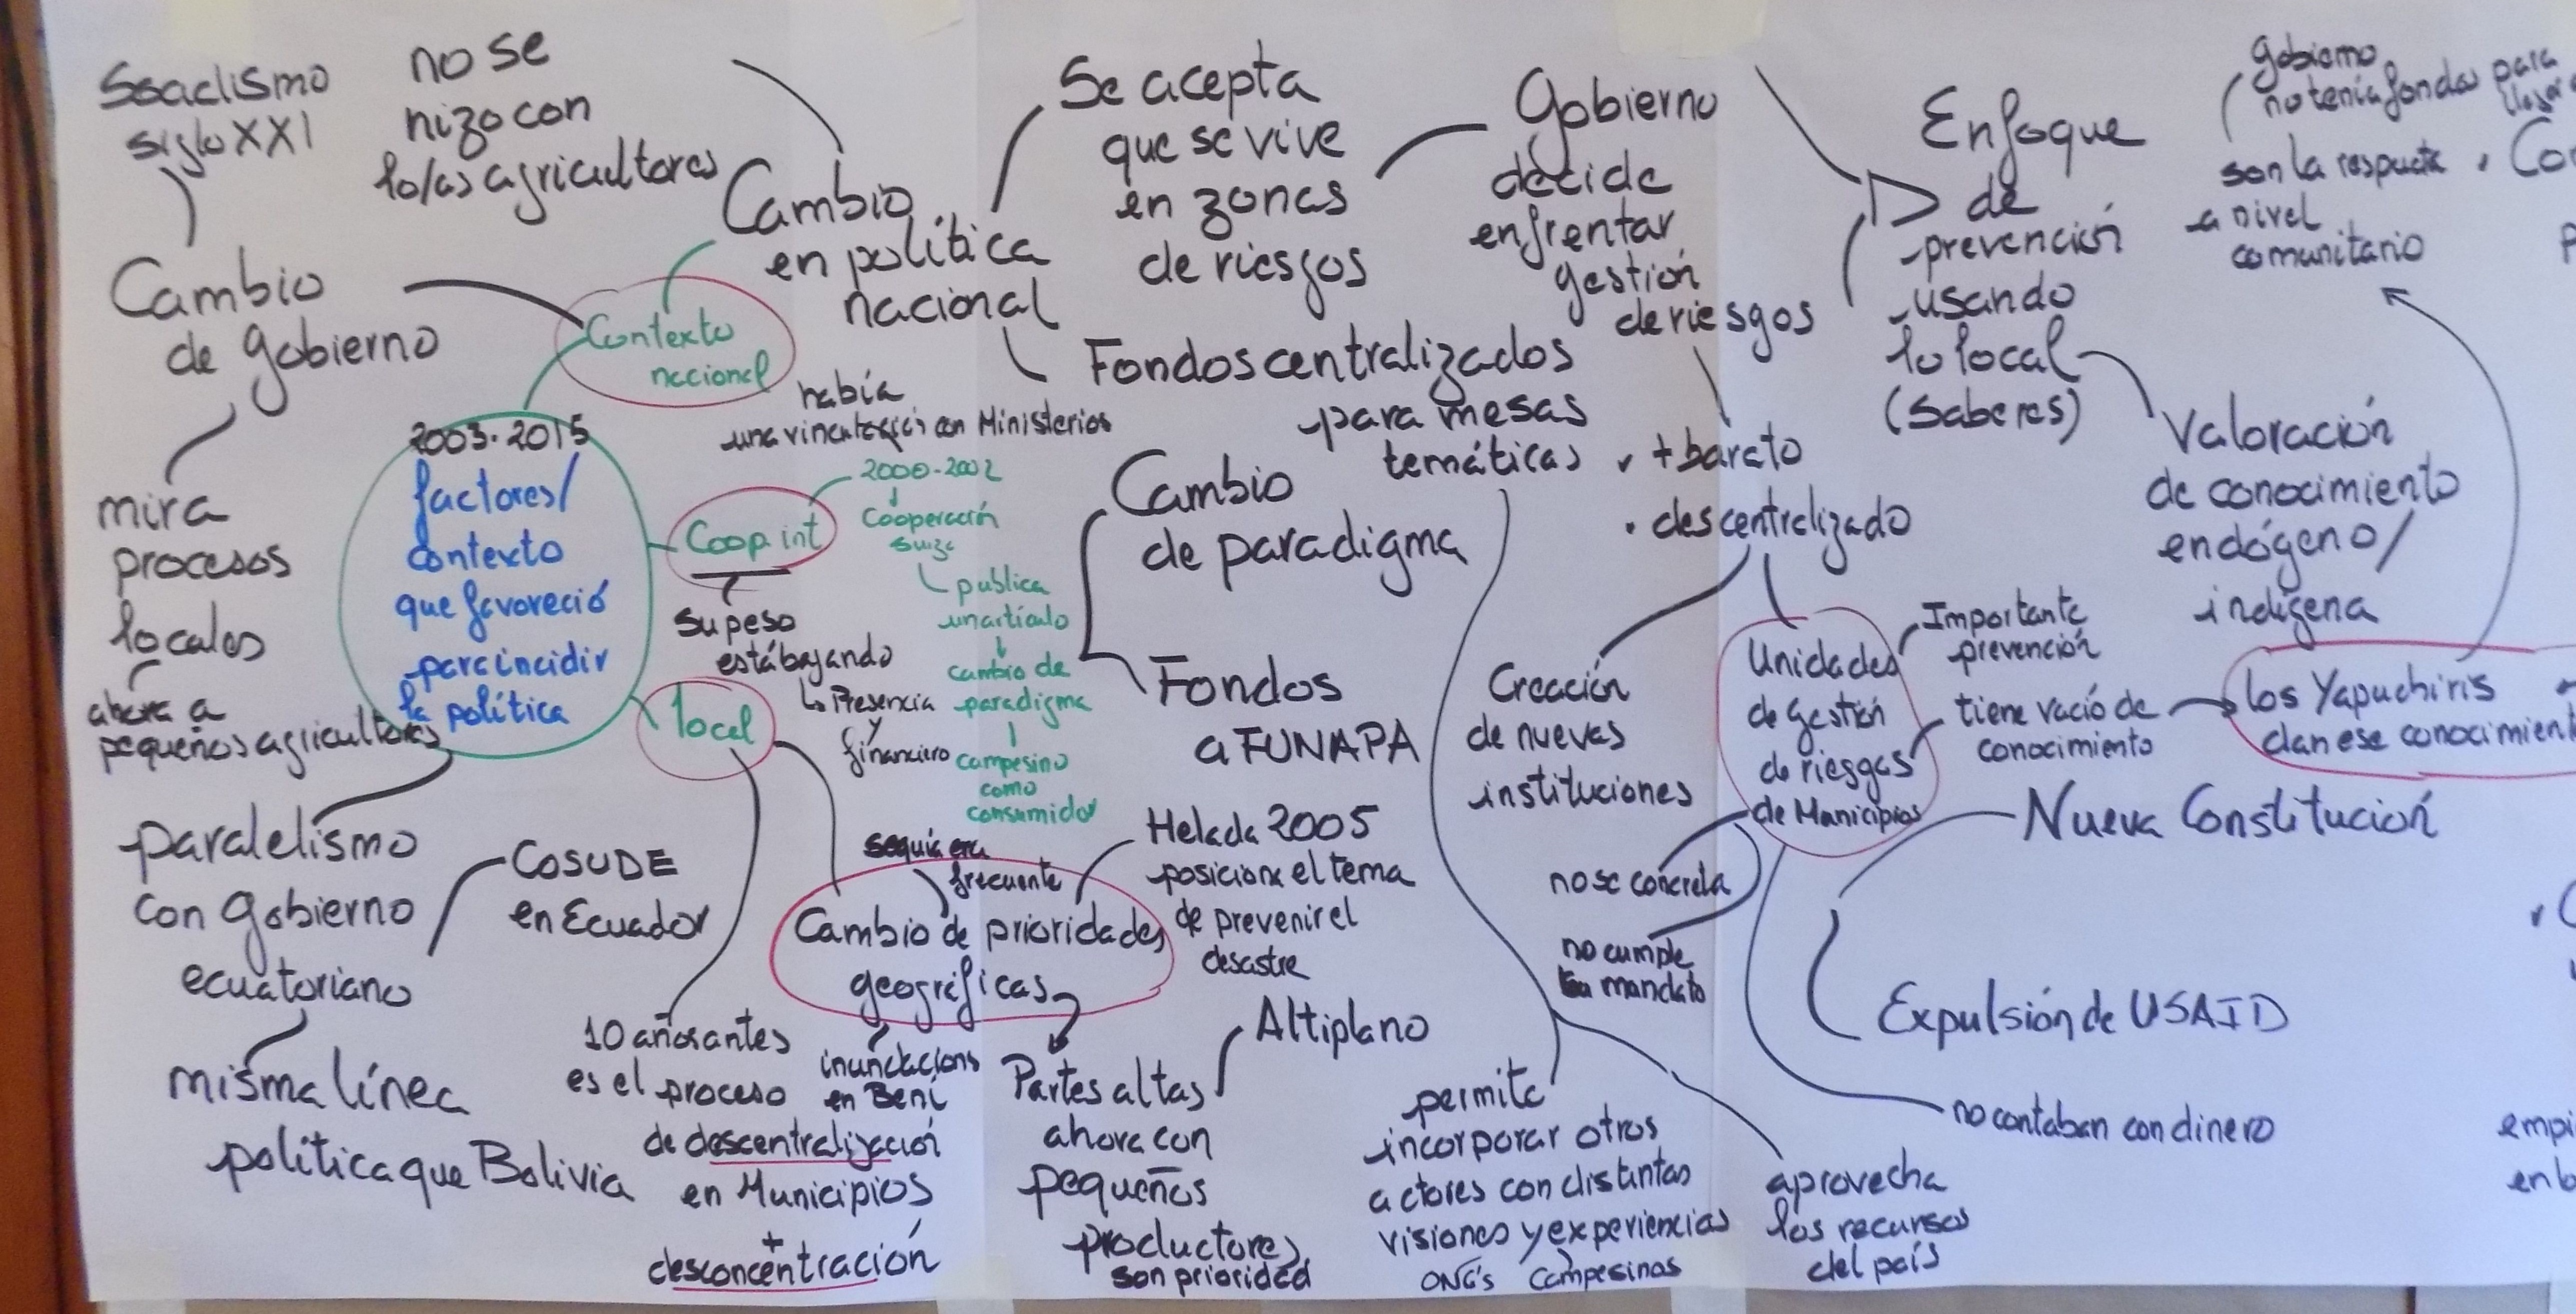 Soaclismo
siglo XXI
no se
hizo con
lo/as agricultores
Cambio
de gobierno
mira
procesos
locales
ahora a
pequeños agricultores
Cambio
en política
nacional
Contexto
nacional
2003-2015
factores/
contexto
que favoreció
para incidir
la política
había
una vinculación con Ministerios
Coop. int
2000-2002
Cooperación
suiza
publica
un artículo
cambio de
paradigma
campesino
como
consumidor
su peso
está bajando
Presencia
y
financiero
local
paralelismo
con gobierno
ecuatoriano
COSUDE
en Ecuador
misma línea
política que Bolivia
10 años antes
es el proceso
de descentralización
en Municipios
+
desconcentración
sequía era
frecuente
Cambio de prioridades
geográficas
inundacions
en Beni
Helada 2005
posiciona el tema
de prevenir el
desastre
Partes altas
ahora con
pequeños
productores
son prioridad
Altiplano
Se acepta
que se vive
en zonas
de riesgos
Fondos centralizados
para mesas
temáticas
Cambio
de paradigma
Fondos
a FUNAPA
Gobierno
decide
enfrentar
gestión
de riesgos
+ barato
descentralizado
Creación
de nuevas
instituciones
Unidades
de Gestión
de riesgos
de Municipios
Importante
prevención
tiene vacío de
conocimiento
los Yapuchiris
dan ese conocimient
no se concreta
no cumple
mandato
permite
incorporar otros
actores con distintas
visiones y experiencias
ONG's campesinas
aprovecha
los recursos
del país
no contaban con dinero
Nueva Constitución
Expulsión de USAID
Enfoque
de
prevención
usando
lo local
(Saberes)
Valoración
de conocimiento
endógeno/
indígena
gobierno
no tenía fondos para
son la respuesta
a nivel
comunitario
Co
empi
en b